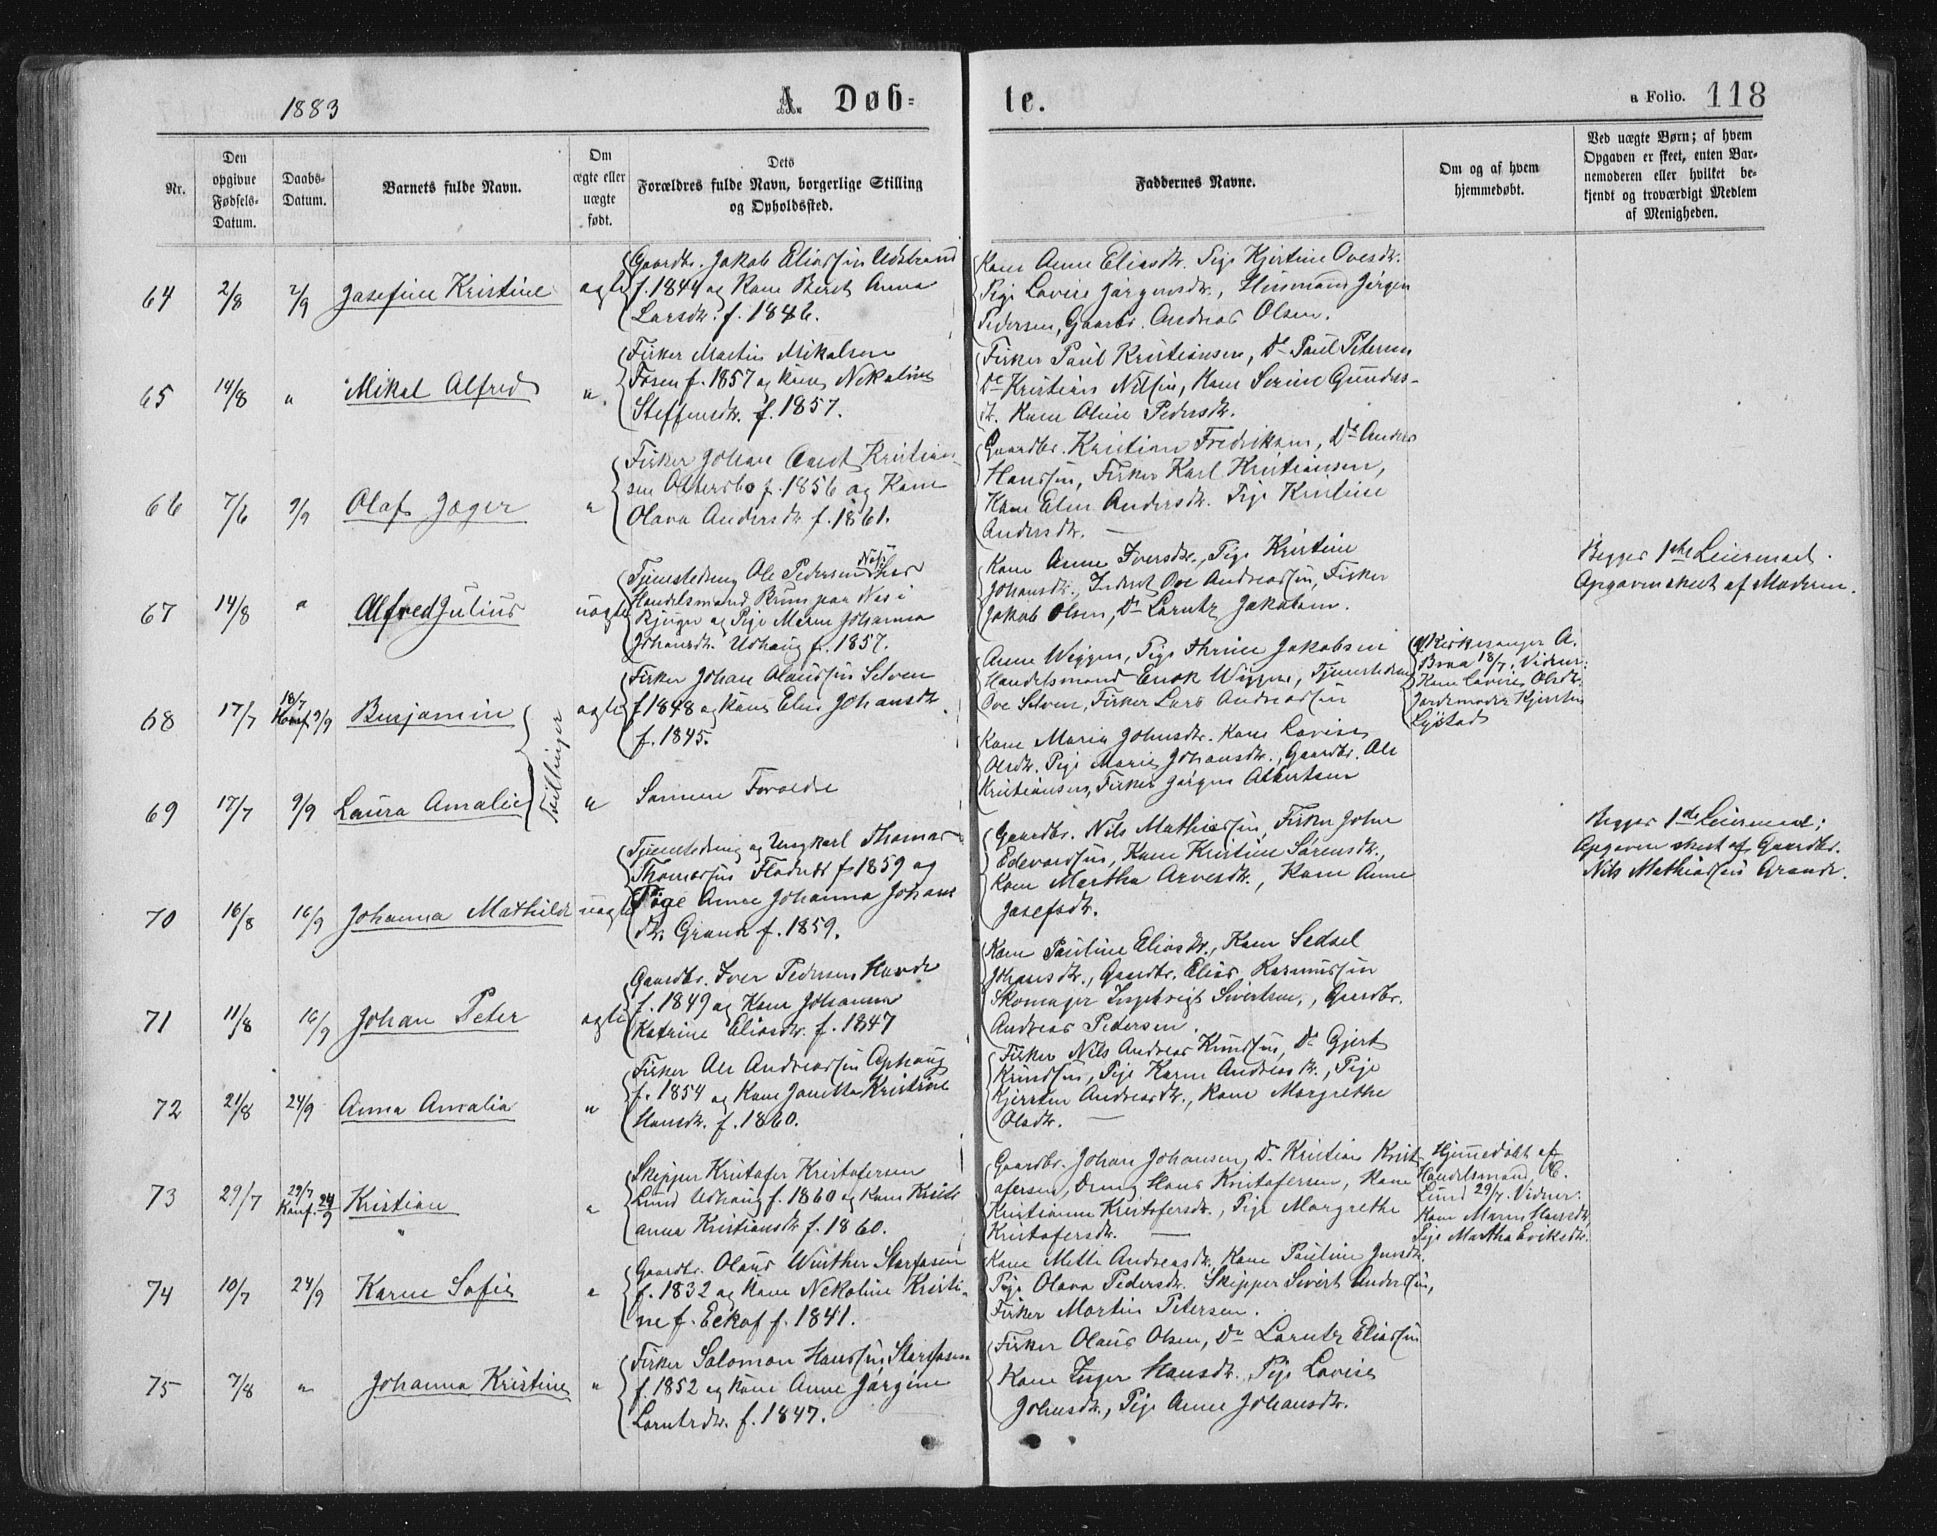 1883
A. Døb-
te.
a Folio. 118
Nr.
Den opgivne Fødsels-Datum.
Daabs-Datum.
Barnets fulde Navn.
Om ægte eller uægte født.
Dets Forældres fulde Navn, borgerlige Stilling og Opholdssted.
Faddernes Navne.
Om og af hvem hjemmedøbt.
Ved uægte Børn; af hvem Opgaven er skeet, enten Barnemoderen eller hvilket bekjendt og troværdigt Medlem af Menigheden.
64 2/8 2/9 Josefine Kristine ægte
Gaardbr. Jakob Eliassen
f. 1844 og Kone Beret Anna
Larsdtr. f. 1842.
Kone Anne Eliasdtr. Pige Kjerstine Ovesdtr.
Pige Lovise Jørgensdtr., Husmand Jørgen
Pedersen, Gaardbr. Andreas Olsen.
65 14/8 " Mikal Alfred "
Fisker Martin Mikalsen
Fosen f. 1857 og Kone Nekoline
Steffensdtr. f. 1857.
Fisker Paul Kristiansen, Do Paul Petersen
Do Kristian Nilsen, Kone Serine Gunders-
dtr. Kone Oline Pedersdtr.
66 7/6 9/9 Olaf Jæger "
Fisker Johan Arndt Kristian-
sen Ottersbo f. 1856 og Kone
Olava Andersdtr f. 1861.
Gaardbr. Kristian Fredriksen, Do Anders
Hanssen, Fisker Karl Kristiansen,
Kone Elen Andersdtr. Pige Kristine
Andersdtr.
67 14/8 " Alfred Julius uægte
Tjenestedreng Ole Pedersen Næs hos
Handelsmand Bruun paa Næs i
Bjugn og Pige Maren Johanna
Johansdtr. Udhaug f. 1857.
Kone Anne Iversdtr., Pige Kristine
Johansdtr., Inderst Ove Andreassen, Fisker
Jakob Olsen, Do Lorntz Jakobsen.
Begges 1ste Leiermaal.
Opgaven skeet af Moderen.
68 17/7 18/7 Konf. 9/9 Benjamin ægte
Tvillinger
Fisker Johan Olaussen Selven
f. 1848 og Kone Elen Johansdtr.
f. 1845.
Anne Wiggen, Pige Thrine Jakobsen
Handelsmand Enok Wiggen, Tjenestedreng
Ove Selven, Fisker Lars Andreassen
af Kirkesanger A.
Braa 18/7. Vidner:
Kone Lovise Olsdtr.
Jordemoder Kjerstin
Lystad
69 17/7 9/9 Laura Amalie "
Samme Forældre
Kone Maria Johnsdtr. Kone Lovise
Olsdtr. Pige Marie Johansdtr., Gaardbr. Ole
Kristiansen, Fisker Jørgen Albertsen
70 16/8 16/9 Johanna Mathilde uægte
Tjenestedreng og Ungkarl Thomas
Thomassen Flodnes f. 1859 og
Pige Anne Johanna Johans-
dtr. Grande f. 1859.
Gaardbr. Nils Mathiassen, Fisker John
Edevardsen, Kone Kristine Sørensdtr.,
Kone Martha Arvesdtr., Kone Anne
Josefsdtr.
Begges 1ste Leiermaal;
Opgaven skeet af Gaardbr.
Nils Mathiassen Grande.
71 11/8 16/9 Johan Peter ægte
Gaardbr. Iver Pedersen Hovde
f. 1849 og Kone Johanna
Katrine Eliasdtr. f. 1847
Kone Pauline Eliasdtr., Kone Sedsel
Johansdtr., Gaardbr. Elias Rasmussen
Skomager Ingebrigt Sivertsen, Gaardbr.
Andreas Pedersen.
72 21/8 24/9 Anna Amalia "
Fisker Ole Andreassen Ophaug
f. 1854 og Kone Jonetta Kristine
Hansdtr. f. 1860.
Fisker Nils Andreas Knudsen, Do Gjert
Knudsen, Pige Karen Andreasdtr., Pige
Kjersten Andreasdtr., Kone Margrethe
Olsdtr.
73 29/7 29/7 Konf. 24/9 Kristian "
Skipper Kristofer Kristofersen
Lund Udhaug f. 1860 og Kone Kristi-
anna Kristiansdtr f. 1860.
Gaardbr. Johan Johansen, Do Kristian Krist-
ofersen, Dreng Hans Kristofersen, Kone
Kristianna Kristofersdtr., Pige Margrethe
Kristofersdtr.
Hjemmedøbt af
Handelsmand C.
Lund 29/7. Vidner:
Kone Maren Hansdtr,
Pige Martha Eriksdtr.
74 10/7 24/9 Karen Sofie "
Gaardbr. Olaus Winther Storfosen
f. 1832 og Kone Nekoline Kristi-
ne f. Eckof f. 1841.
Kone Mette Andreasdtr, Kone Pauline Jensdtr.
Pige Olava Pedersdtr. Skipper Sivert Anderssen,
Fisker Martin Petersen.
75 7/8 " Johanna Kristine "
Fisker Salomon Hanssen Storfosen
f. 1852 og Kone Anne Jørgine
Lorntsdtr. f. 1847.
Fisker Olaus Olsen, Do Lorntz Eliassen
Kone Inger Hansdtr. Pige Lovise
Johnsdtr., Pige Anne Johansdtr.